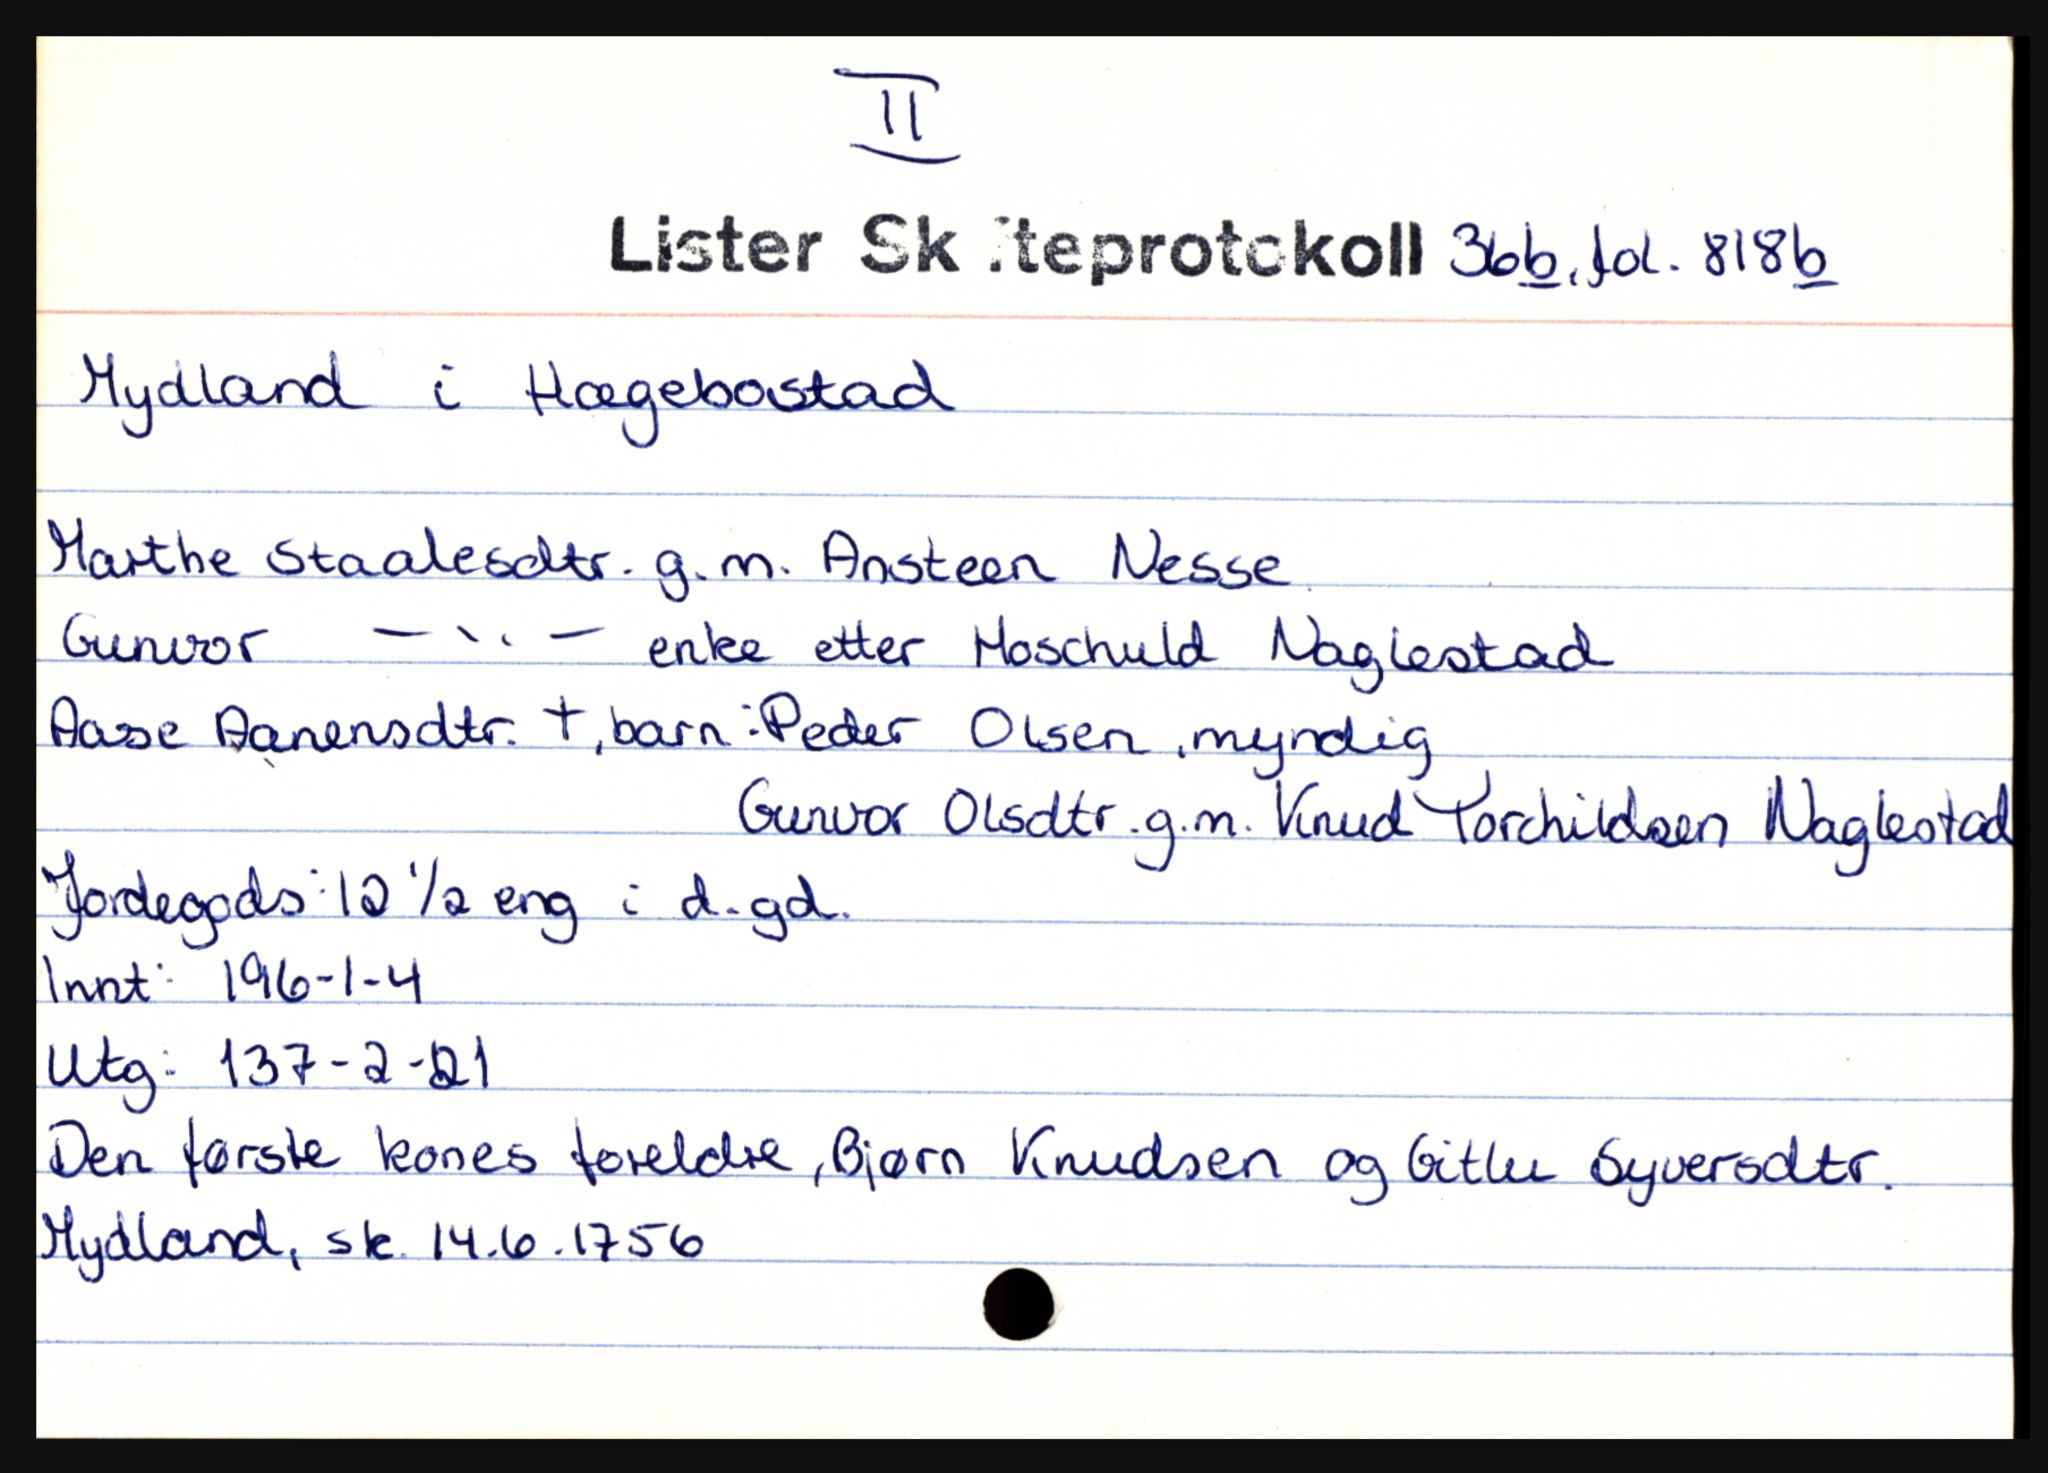 II
Lister Skiteprotokoll 36b, fol. 818b
Mydland i Hægebostad
Marthe Staalesdtr. g.m. Ansteen Nesse
Gunvor — " — enke etter Hoschuld Naglestad
Aase Aanensdtr. †, barn: Peder Olsen, myndig
Gunvor Olsdtr. g.m. Knud Torchildsen Naglestad
Jordegods: 12 1/2 eng i d. gd.
Innt: 196-1-4
Utg: 137-2-21
Den første kones foreldre, Bjørn Knudsen og Gitlu Syversdtr.
Mydland, sk. 14.6.1756